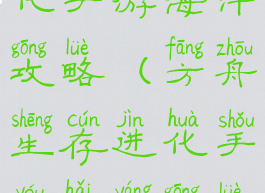 化手游海洋
gōng lüè fāng zhōu
攻略（方舟
shēng cún jìn huà shǒu
生存进化手
yóu hǎi yáng gōng lüè